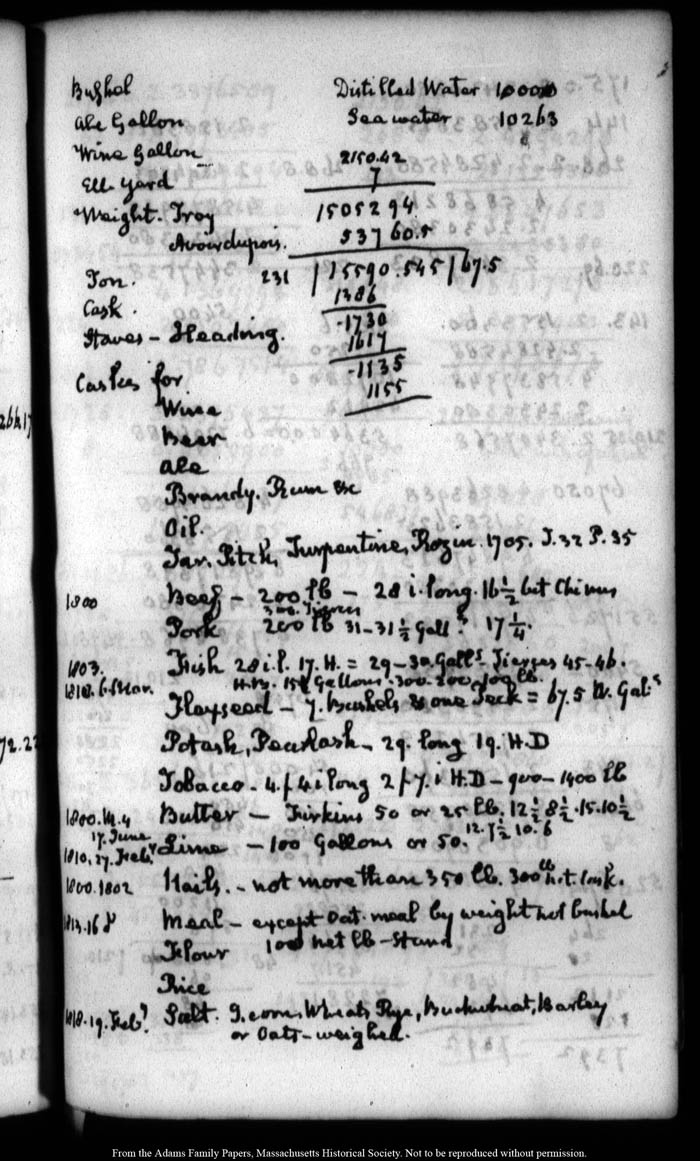 Bushel
Ale Gallon
Wine Gallon
Ell. Yard
Weight. Troy
Avoirdupois.
Ton.
Cask.
Staves - Heading.
Casks for
Wine
Beer
Ale
Brandy. Rum &c
Oil.
Tar. Pitch, Turpentine, Rozin. 1705. T. 32 P. 35
Distilled Water 10000
Sea water 10263
2150.42
7
1505294
53760.5
231 | 15590.545 | 67.5
1386
-1730
1617
-1135
1155
1800 Beef - 200 lb - 28 i. long. 16 1/2 bet Chimes
300. Tierces
Pork 200 lb 31-31 1/2 Galls 17 1/4.
1803. Fish 28 i.l. 17. H. = 29-30 Galls Tierces 45-46.
H.B. 15 1/2 Gallons. 300. 200. 100 lb.
1810. 6. Mar. Flaxseed - 7. bushels & one Peck = 67.5 W. Gals
Potash, Pearlash - 29. long 19. H.D
Tobacco - 4. f 4 i long 2 f 7. i H.D - 900 - 1400 lb
1800. M. 4 Butter - Firkins 50 or 25 lb. 12 1/2 8 1/2 . 15. 10 1/2
17. June 12. 7 1/2 10. 6
1810, 27. Feby Lime - 100 Gallons or 50.
1800. 1802 Nails. - not more than 350 lb. 300 lb n.t. cask.
Meal - except Oat. meal by weight not bushel
Flour 100 net lb - Stand
Rice
1818. 19. Feby. Salt. I. corn, Wheat, Rye, Buckwheat, Barley
or Oats - weighed.
266.17
72.22
From the Adams Family Papers, Massachusetts Historical Society. Not to be reproduced without permission.